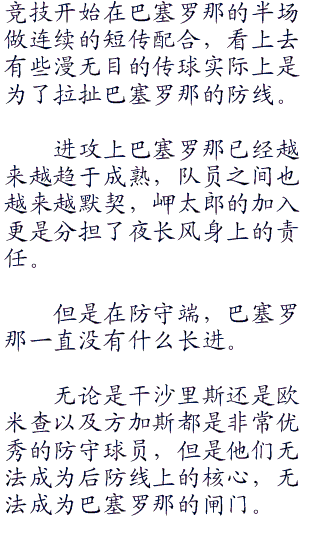 竞技开始在巴塞罗那的半场
做连续的短传配合，看上去
有些漫无目的传球实际上是
为了拉扯巴塞罗那的防线。
进攻上巴塞罗那已经越
来越趋于成熟，队员之间也
越来越默契，岬太郎的加入
更是分担了夜长风身上的责
任。
但是在防守端，巴塞罗
那一直没有什么长进。
无论是干沙里斯还是欧
米查以及方加斯都是非常优
秀的防守球员，但是他们无
法成为后防线上的核心，无
法成为巴塞罗那的闸门。